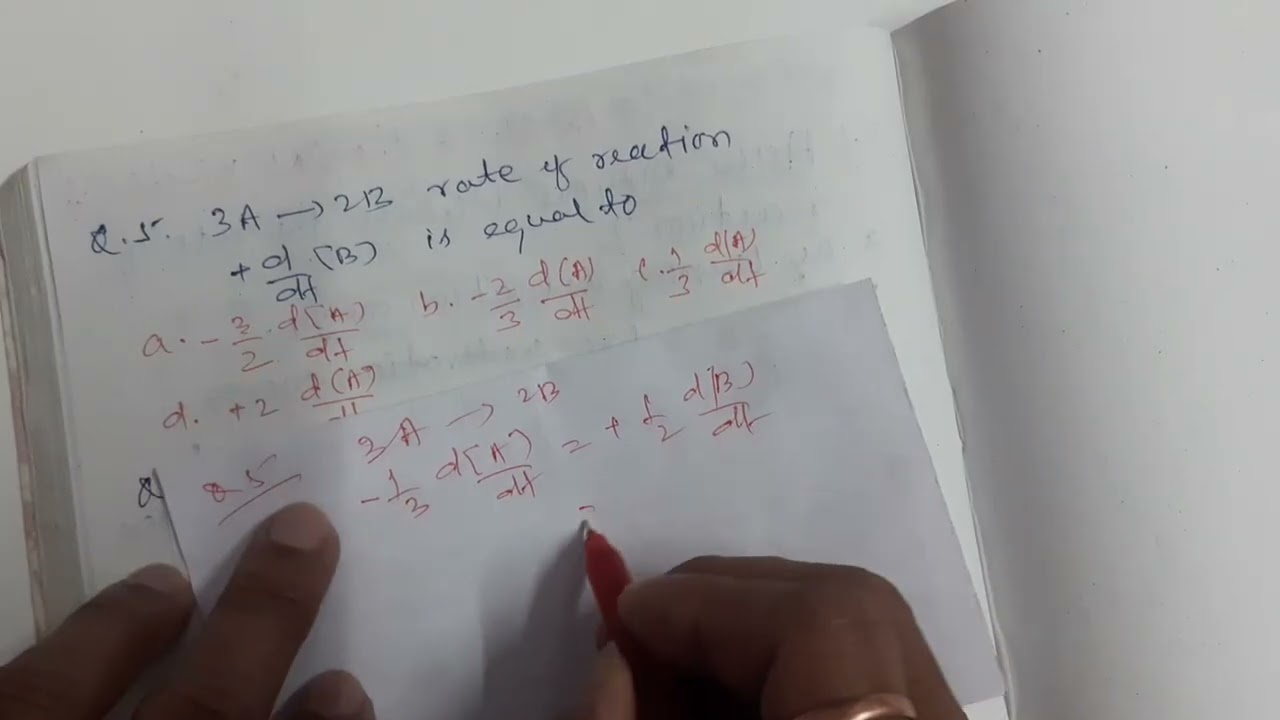 Q.5. 3A → 2B rate of reaction
+ d/dt (B) is equal to
a. - 3/2 . d[A)/dt b. - 2/3 d(A)/dt c. 1/3 d(A)/dt
d. +2 d(A)/dt
Q
Q5 3A → 2B
- 1/3 d[A)/dt = + 1/2 d(B)/dt